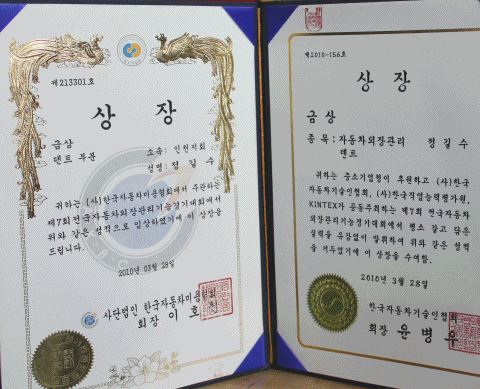 제213301호
상 장
금상
덴트 부문
소속: 인천지회
성명: 정 길 수
귀하는 (사)한국자동차미용협회에서 주관하는
제7회 전국자동차외장관리기능경기대회에서
위와 같은 성적으로 입상하였기에 이 상장을
드립니다.
2010년 03월 28일
사단법인 한국자동차미용협회
회장 이 호
제2010-156호
상 장
금상
종 목 : 자동차외장관리 정 길 수
덴트
귀하는 중소기업청이 후원하고 (사)한국
자동차기술인협회, (사)한국직업능력평가원,
KINTEX가 공동주최하는 제7회 전국자동차
외장관리기능경기대회에서 평소 갈고 닦은
실력을 유감없이 발휘하여 위와 같은 성적
을 거두었기에 이 상장을 수여함.
2010년 3월 28일
한국자동차기술인협회
회장 윤 병 우